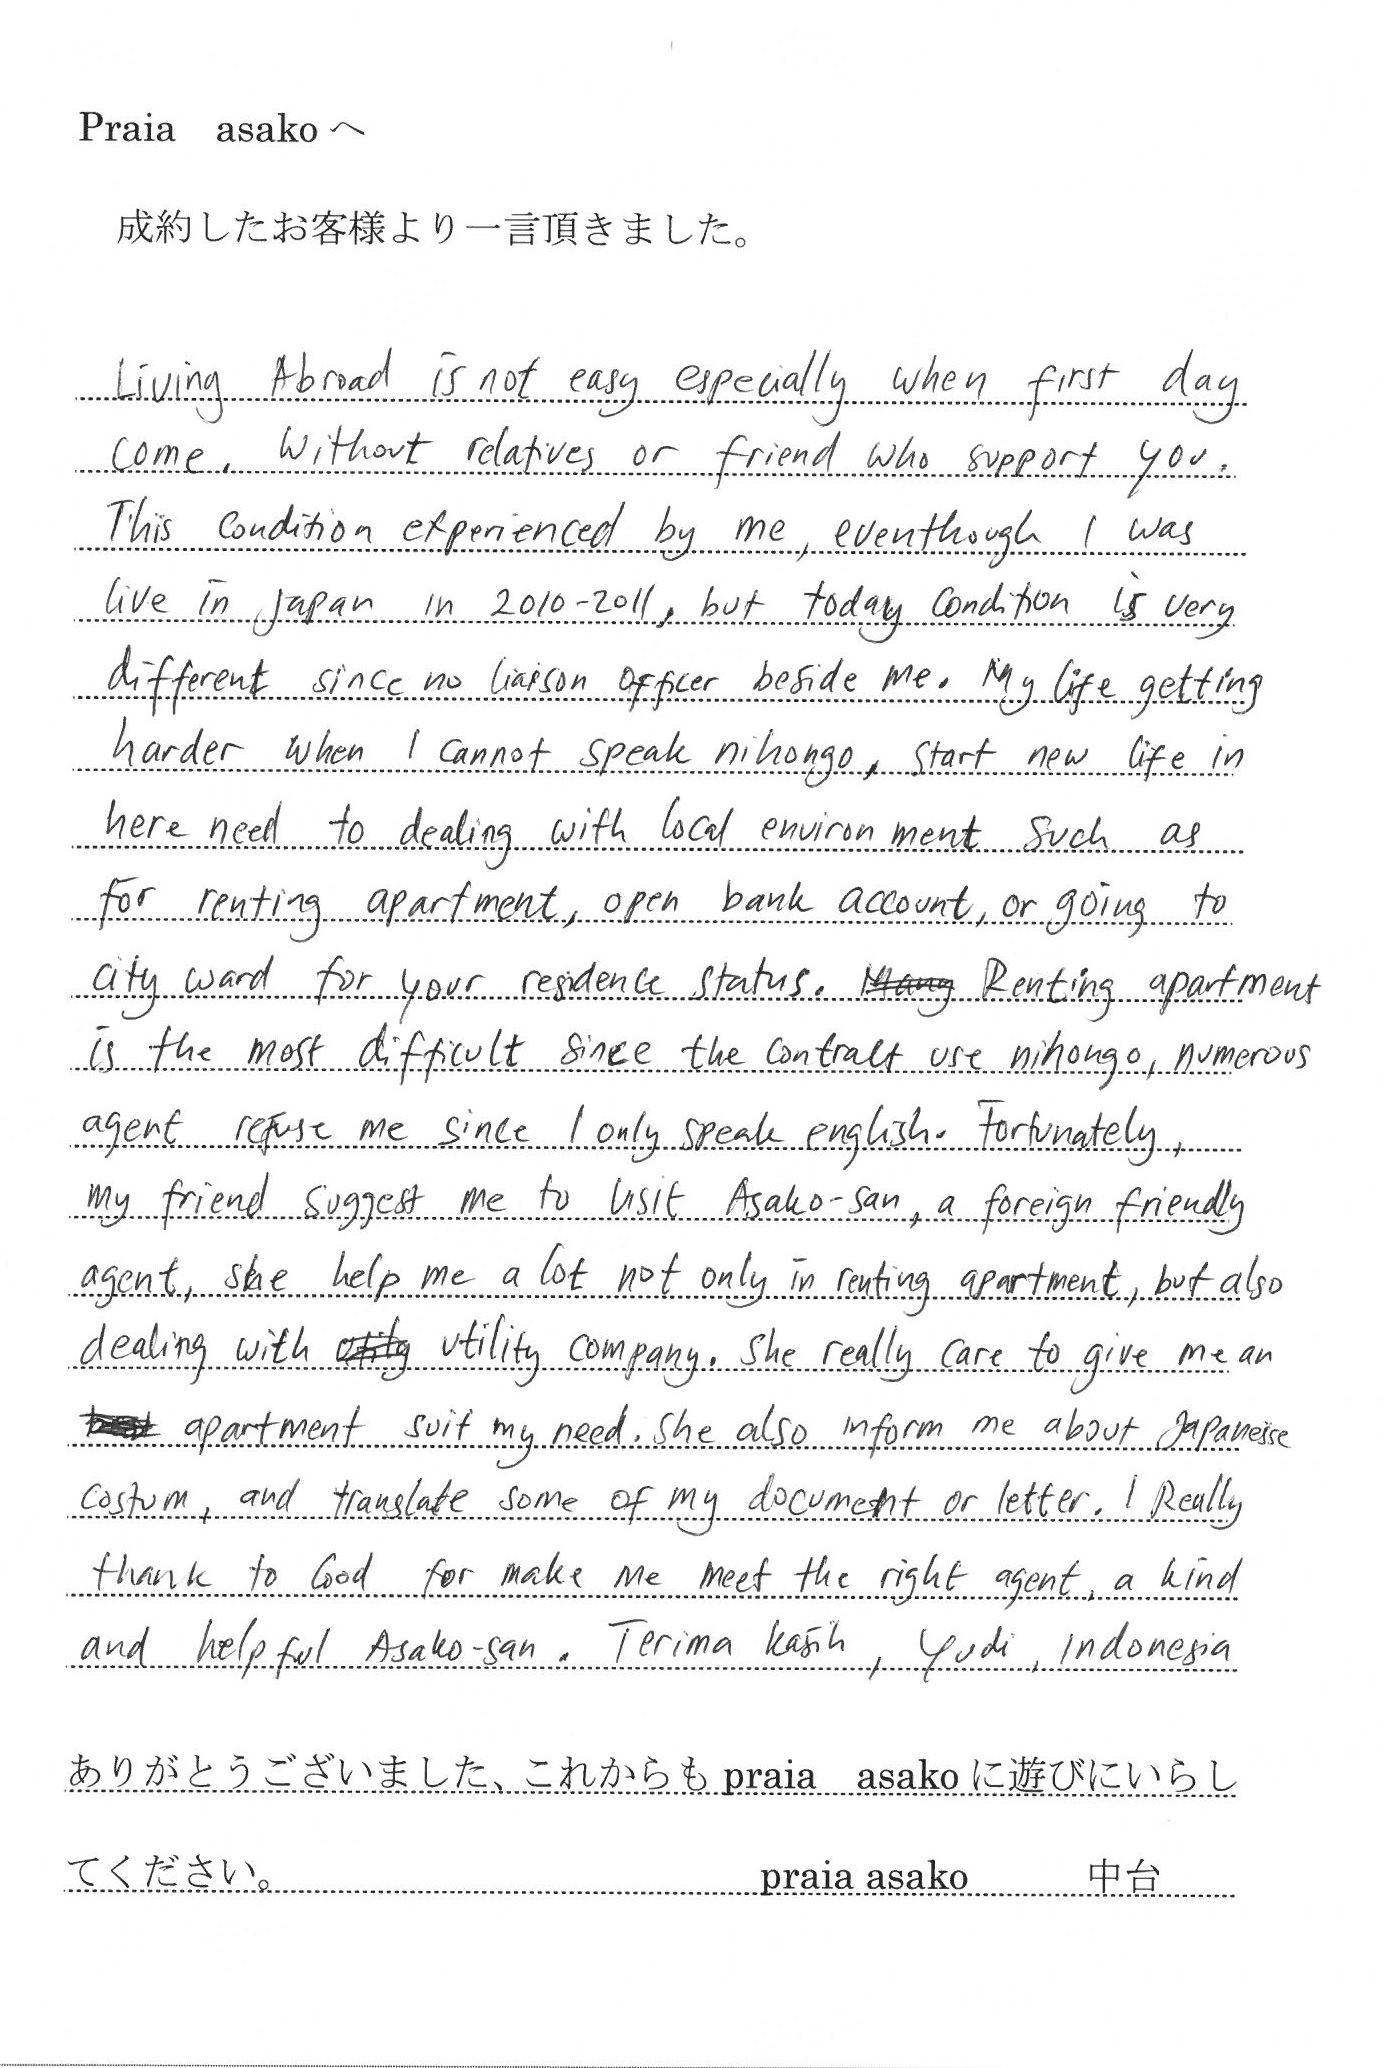 Praia　asako へ
成約したお客様より一言頂きました。
Living Abroad is not easy especially when first day
come. Without relatives or friend who support you.
This Condition experienced by me, eventhough I was
live in Japan in 2010-2011, but today condition is very
different since no liaison officer beside me. My life getting
harder when I cannot speak nihongo, start new life in
here need to dealing with local environment such as
for renting apartment, open bank account, or going to
city ward for your residence status. Renting apartment
is the most difficult since the contract use nihongo, numerous
agent refuse me since I only speak english. Fortunately,
my friend suggest me to visit Asako-san, a foreign friendly
agent, she help me a lot not only in renting apartment, but also
dealing with utility company. She really care to give me an
apartment suit my need. She also inform me about Japanesse
costum, and translate some of my document or letter. I Really
thank to God for make me meet the right agent, a kind
and helpful Asako-san. Terima kasih, Yudi, Indonesia
ありがとうございました、これからも praia　asako に遊びにいらし
てください。 praia asako 中台